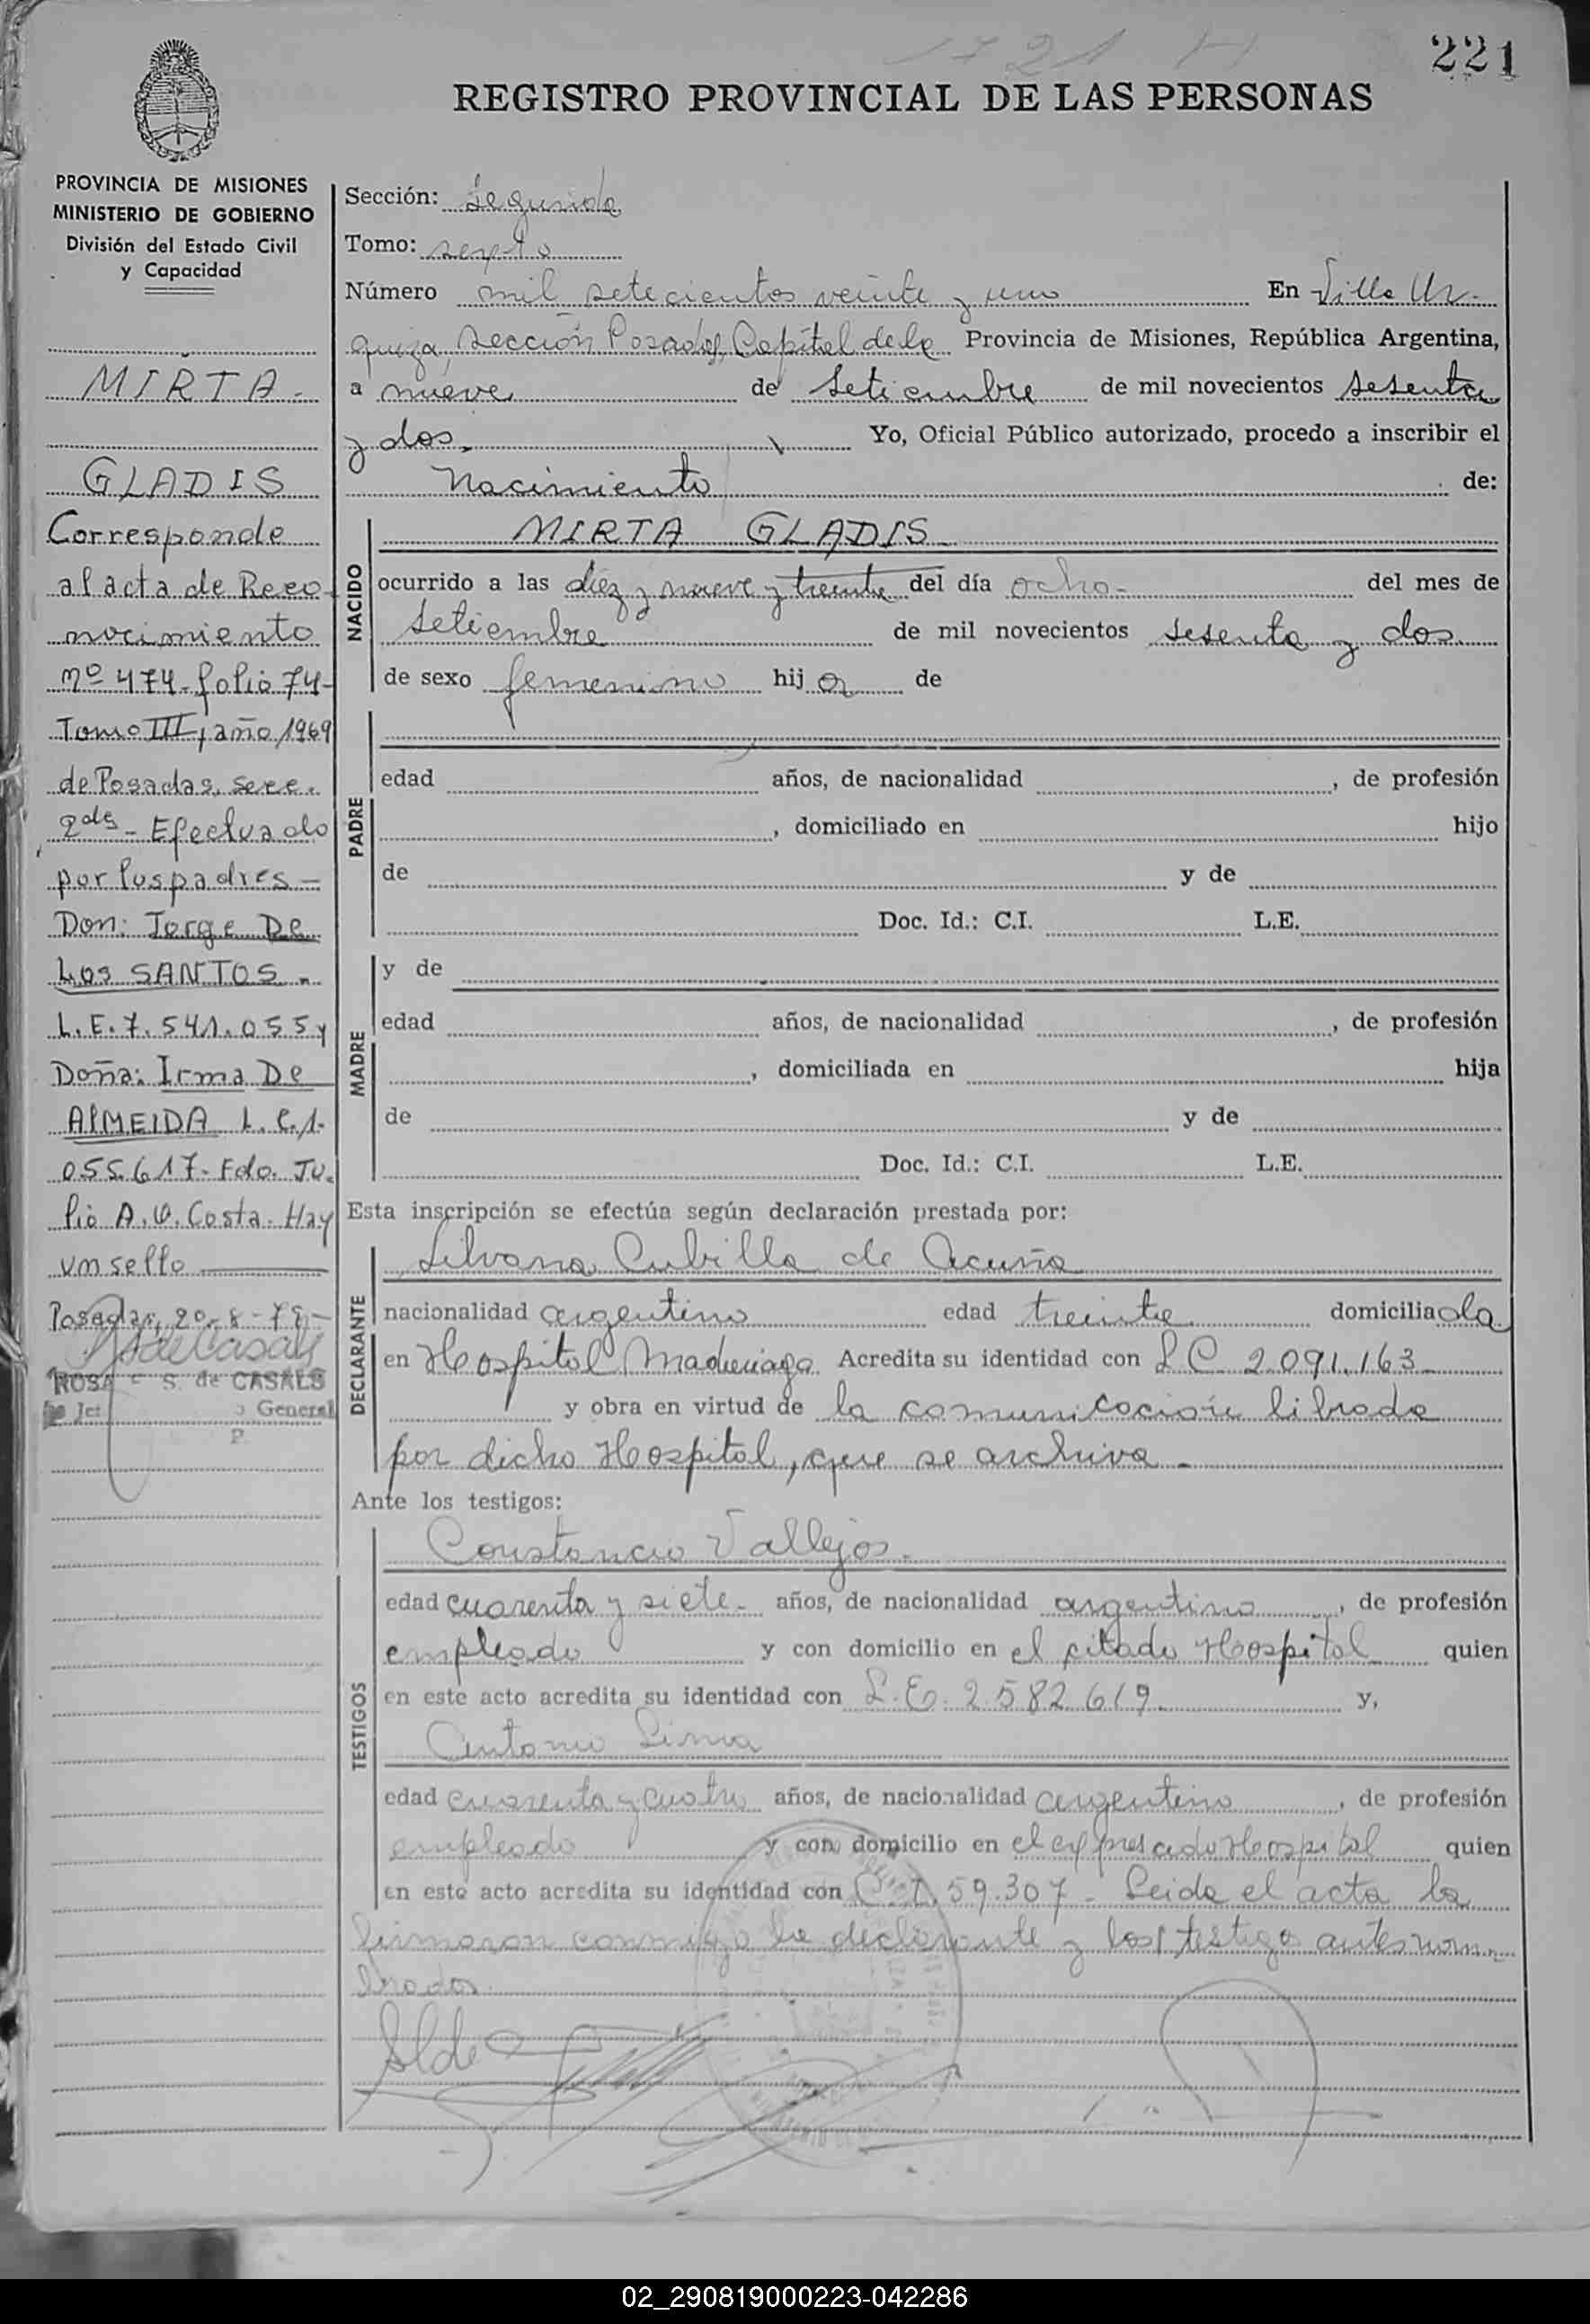 1721 H
221
REGISTRO PROVINCIAL DE LAS PERSONAS
PROVINCIA DE MISIONES
MINISTERIO DE GOBIERNO
División del Estado Civil
y Capacidad
MIRTA -
GLADIS
Corresponde
al acta de Reco-
nocimiento
nº 474 - folio 74 -
Tomo III, año 1969
de Posadas, secc.
2da - Efectuado
por los padres -
Don: Jorge De
Los SANTOS -
L.E. 7.541.055 y
Doña: Irma De
AlMEIDA L.C. 1.
055.617 - Fdo. Ju-
lio A. V. Costa. Hay
un sello
Posadas, 20-8-78-
ROSA S. de CASALS
General
Sección: Segunda
Tomo: sexto
Número mil setecientos veinte y uno En Villa Ur-
quiza, sección Posadas, Capital de la Provincia de Misiones, República Argentina,
a nueve de setiembre de mil novecientos sesenta
y dos. Yo, Oficial Público autorizado, procedo a inscribir el
Nacimiento de:
NACIDO
MIRTA GLADIS
ocurrido a las diez y nueve y treinta del día ocho - del mes de
setiembre de mil novecientos sesenta y dos
de sexo femenino hij a de
PADRE
edad años, de nacionalidad , de profesión
, domiciliado en hijo
de y de
Doc. Id.: C.I. L.E.
MADRE
y de
edad años, de nacionalidad , de profesión
, domiciliada en hija
de y de
Doc. Id.: C.I. L.E.
Esta inscripción se efectúa según declaración prestada por:
DECLARANTE
Silvana Cubilla de Acuña
nacionalidad argentina edad treinta domicilia da
en Hospital Madariaga Acredita su identidad con L C 2.091.163 -
y obra en virtud de la comunicación librada
por dicho Hospital, que se archiva -
Ante los testigos:
TESTIGOS
Constancio Vallejos.
edad cuarenta y siete - años, de nacionalidad argentino , de profesión
empleado y con domicilio en el citado Hospital quien
en este acto acredita su identidad con L.E. 2.582.619 - y,
Antonio Lima
edad cuarenta y cuatro años, de nacionalidad argentino , de profesión
empleado y con domicilio en el expresado Hospital quien
en este acto acredita su identidad con C.I. 59.307 - Leida el acta la
firmaron conmigo la declarante y los testigos antes nom-
brados.
02_290819000223-042286